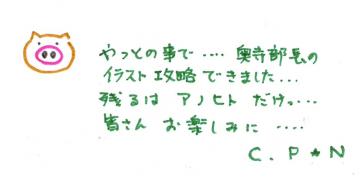 やっとの事で‥‥ 奥寺部長の
イラスト攻略できました...
残るは アノヒト だけっ...
皆さん お楽しみに ‥‥
C. P★N